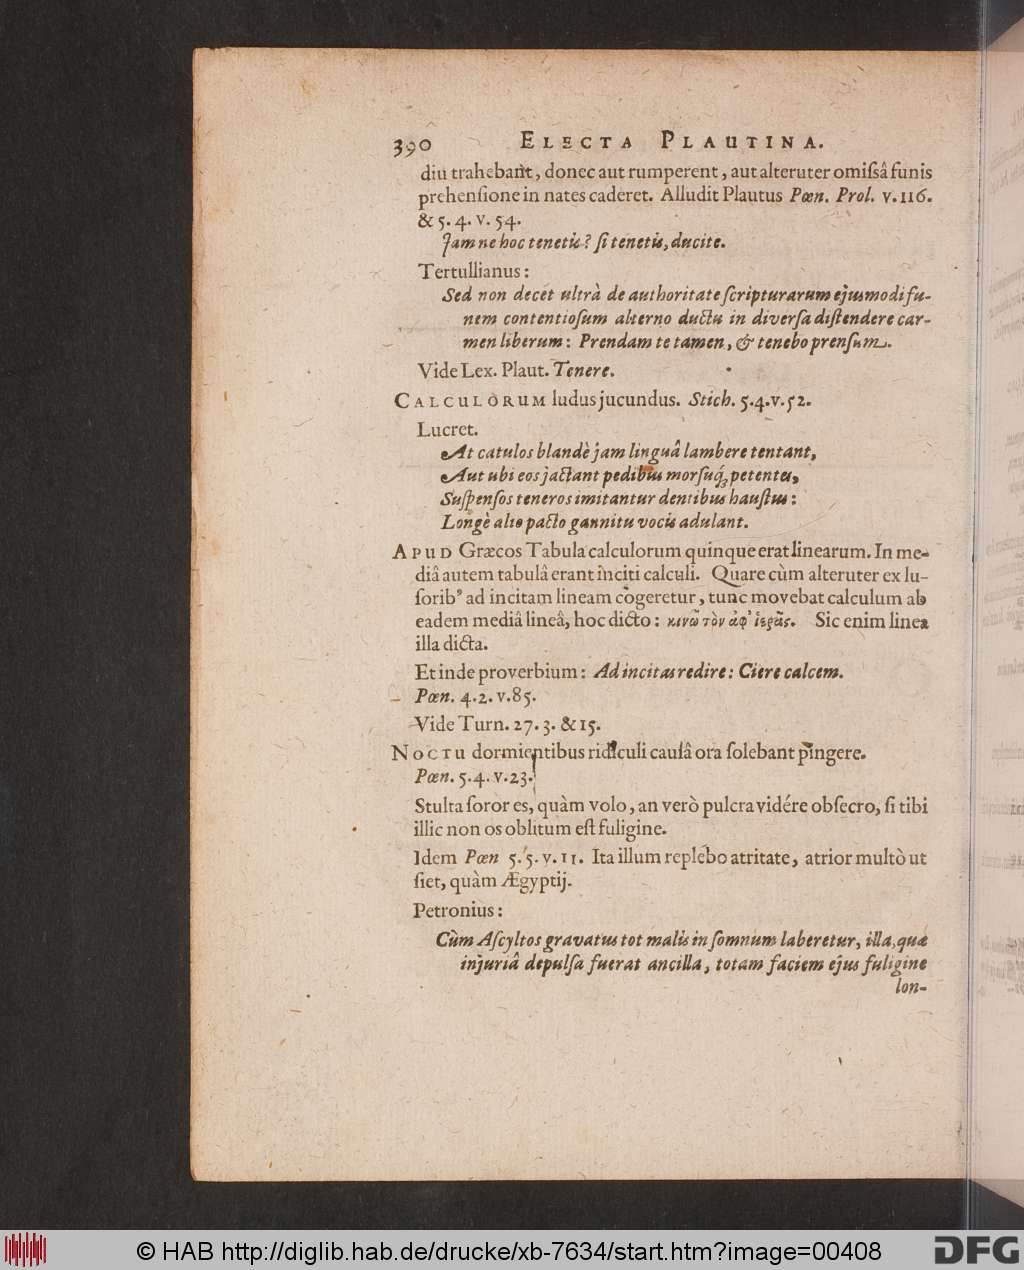 390 ELECTA PLAUTINA.
diu trahebant, donec aut rumperent, aut alteruter omiſsâ funis
prehenſione in nates caderet. Alludit Plautus Pœn. Prol. v. 116.
& 5. 4. v. 54.
Jam ne hoc tenetis? ſi tenetis, ducite.
Tertullianus:
Sed non decet ultrà de authoritate ſcripturarum ejusmodi fu-
nem contentioſum alterno ductu in diverſa diſtendere car-
men liberum: Prendam te tamen, & tenebo prenſum.
Vide Lex. Plaut. Tenere.
CALCULORUM ludus jucundus. Stich. 5.4.v.52.
Lucret.
At catulos blandè jam linguâ lambere tentant,
Aut ubi eos jactant pedibus morſuq́; petentes,
Suſpenſos teneros imitantur dentibus hauſtus:
Longè alio pacto gannitu vocis adulant.
APUD Græcos Tabula calculorum quinque erat linearum. In me-
diâ autem tabulâ erant inciti calculi. Quare cùm alteruter ex lu-
ſorib⁹ ad incitam lineam cogeretur, tunc movebat calculum ab
eadem mediâ lineâ, hoc dicto: κινῶ τὸν ἀφ' ἱερᾶς. Sic enim linea
illa dicta.
Et inde proverbium: Ad incitas redire: Ciere calcem.
Pœn. 4.2. v.85.
Vide Turn. 27. 3. & 15.
NOCTU dormientibus ridiculi cauſâ ora ſolebant pingere.
Pœn. 5.4. v.23.
Stulta ſoror es, quàm volo, an verò pulcra vidére obſecro, ſi tibi
illic non os oblitum eſt fuligine.
Idem Pœn 5. 5. v. 11. Ita illum replebo atritate, atrior multò ut
ſiet, quàm Ægyptij.
Petronius:
Cùm Aſcyltos gravatus tot malis in ſomnum laberetur, illa, quæ
injuriâ depulſa fuerat ancilla, totam faciem ejus fuligine
lon-
© HAB http://diglib.hab.de/drucke/xb-7634/start.htm?image=00408
DFG